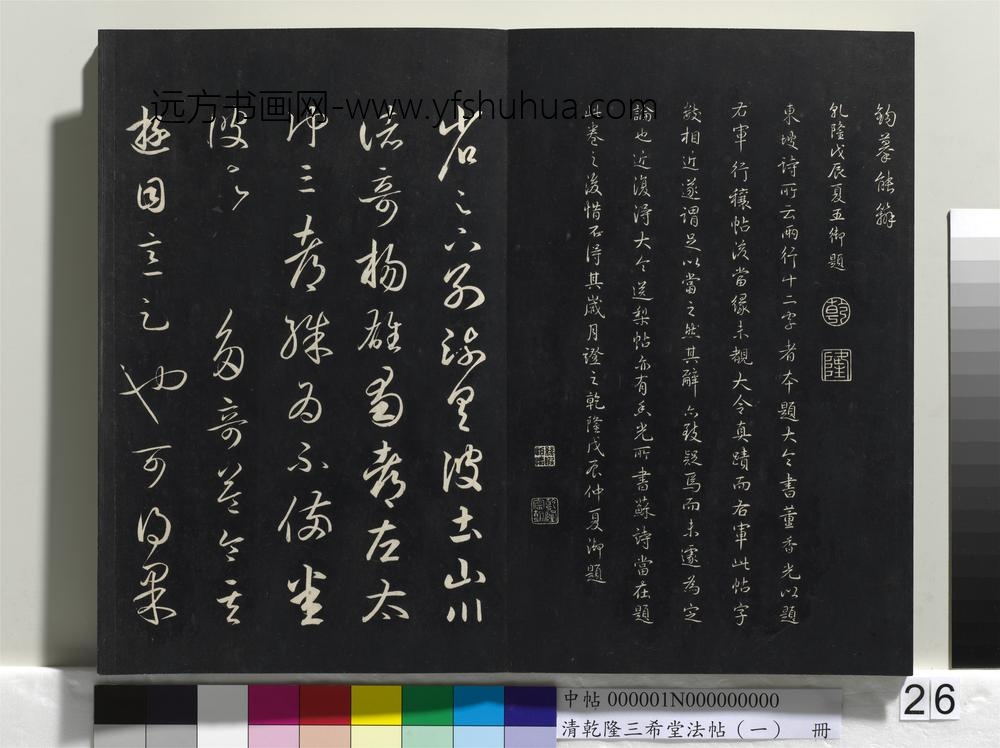 鈎摹能
乾隆戊辰夏五御題
乾
隆
東坡詩所云兩行十二字者本題大令書董香光以題
右軍行穰帖後當緣未覩大令真蹟而右軍此帖字
數相近遂謂足以當之然其辭亦致疑焉而未遽為定
論也近復得大令送梨帖亦有香光所書蘇詩當在題
此卷之後惜不得其歲月證之乾隆戊辰仲夏御題
省足下別疏具彼土山川
諸奇楊雄蜀都左太
沖三都殊為不備悉
彼故多奇益令其
遊目意足也可得果
远方书画网-www.yfshuhua.com
中帖 000001N000000000
清乾隆三希堂法帖（一） 冊
26